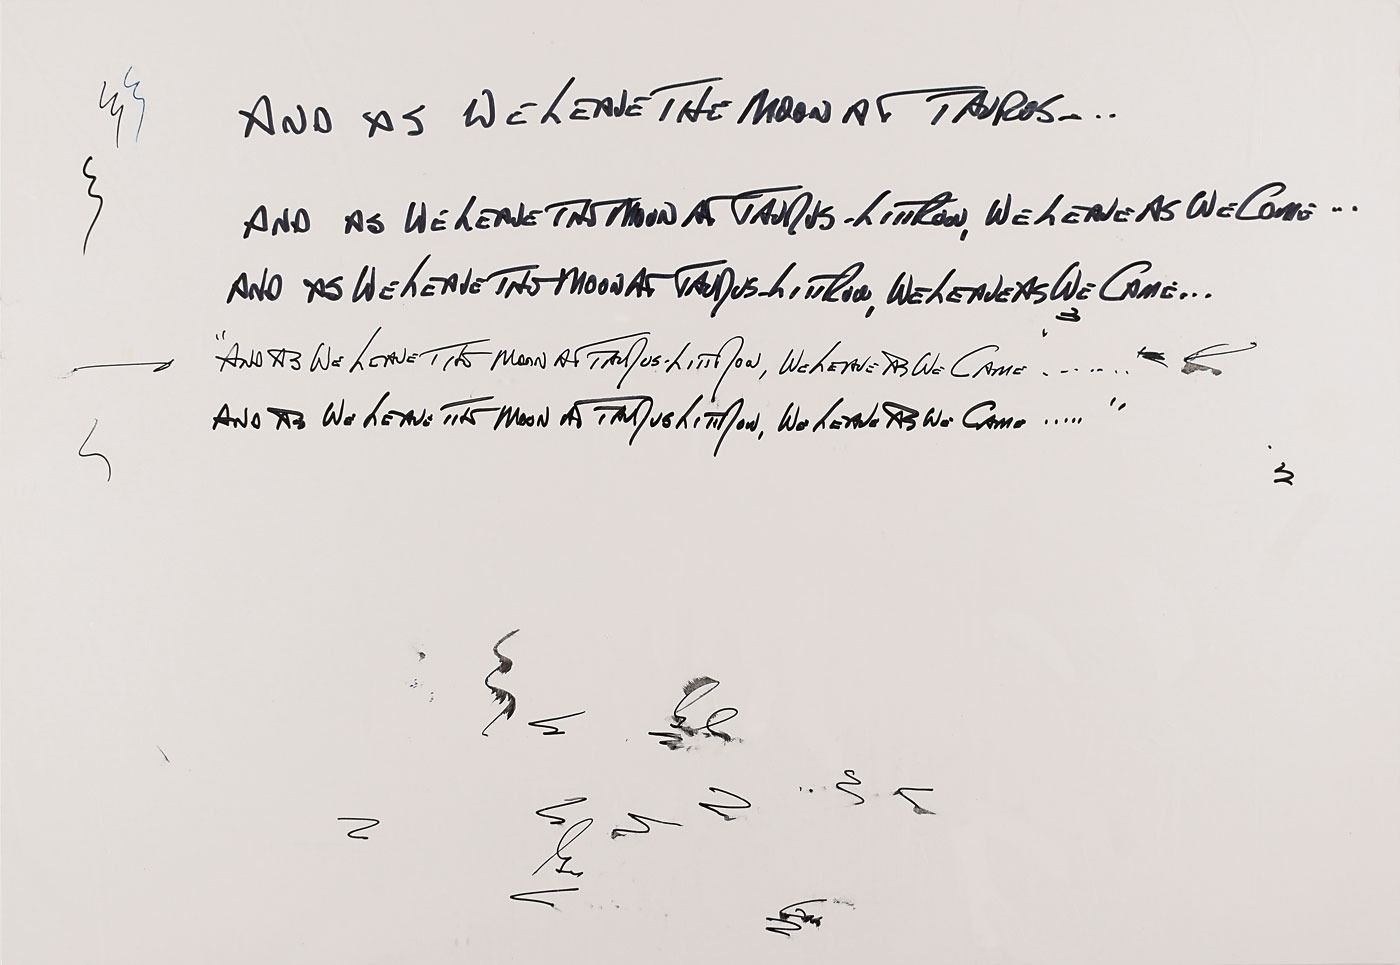 AND AS WE LEAVE THE MOON AT TAURUS....
AND AS WE LEAVE THE MOON AT TAURUS-LITTROW, WE LEAVE AS WE COME...
AND AS WE LEAVE THE MOON AT TAURUS-LITTROW, WE LEAVE AS WE CAME...
"AND AS WE LEAVE THE MOON AT TAURUS-LITTROW, WE LEAVE AS WE CAME ........
AND AS WE LEAVE THE MOON AT TAURUS LITTROW, WE LEAVE AS WE CAME ....."